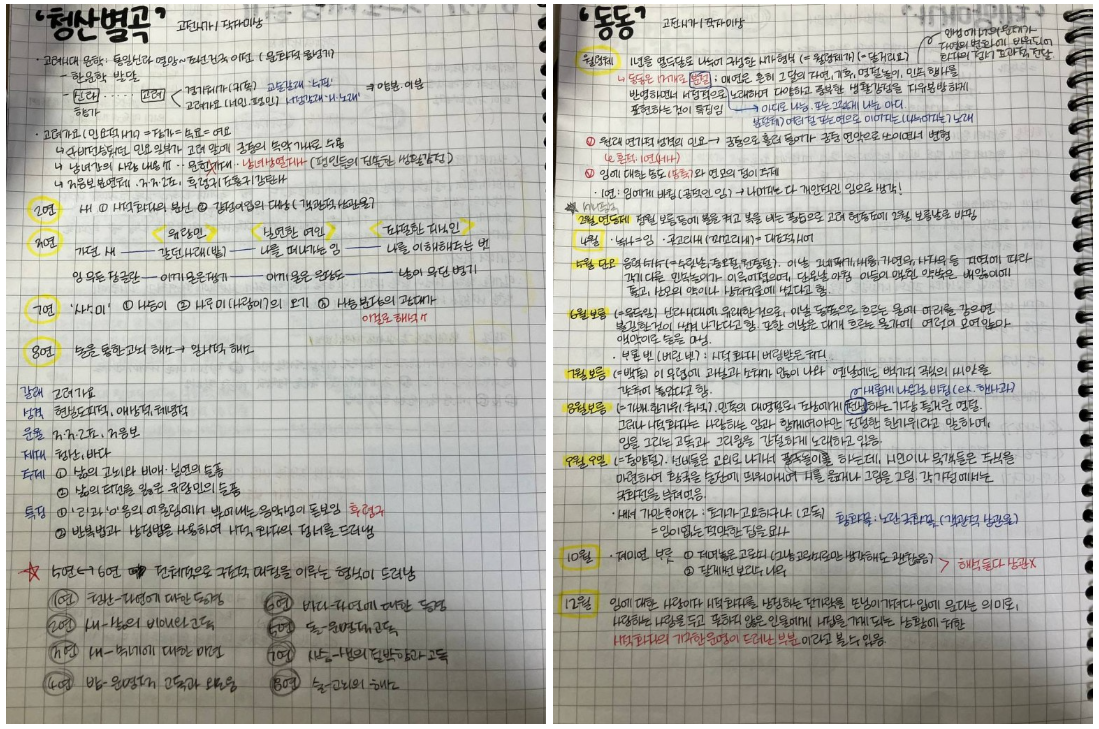 '청산별곡' 고전시가 | 작자미상
· 고려시대 문학: 통일신라 멸망~조선건국 이전 (문화적 융성기)
- 한문학 발달
- 신라 ...... 고려
향가
경기체가 (귀족)
고려가요 (서민·평민)
· 고려가요 (민요적 시가) = 장가 = 속요 = 여요
↳ 남녀간의 사랑 내용↑ 남녀상열지사 (평민들의 진솔한 생활감정)
↳ 3음보 분연체, 3·3·2조, 후렴구
2연 새 ① 시적화자의 분신 ② 감정이입의 대상 (객관적 상관물)
3연 <유랑인> <실연한 여인> <좌절한 지식인>
가던 새 갈던 사래(밭) 나를 떠나가는 임 나를 이해해주는 벗
잉무든 장글란 이끼 묻은 쟁기 이끼 묻은 은장도 날이 무딘 병기
7연 '사슴이' ① 사슴이 ② 사람이 ③ 사슴 분장의 광대가
이걸로 해석↑
8연 술을 통한 고뇌 해소 → 일시적 해소
갈래 고려가요
성격 현실도피적, 애상적, 체념적
운율 3·3·2조, 3음보
제재 청산, 바다
주제 ① 삶의 고뇌와 비애·실연의 슬픔
② 삶의 터전을 잃은 유랑인의 슬픔
특징 ① 'ㄹ'과 'ㅇ'음의 어울림에서 빚어내는 음악성이 돋보임 후렴구
② 반복법과 상징법을 사용하여 시적 화자의 정서를 드러냄
☆ 5연↔6연 전체적으로 구조적 대칭을 이루는 형식이 드러남
1연 청산-자연에 대한 동경
2연 새-삶의 비애와 고독
3연 새-속세에 대한 미련
4연 밤-운명적 고독과 외로움
6연 바다-자연에 대한 동경
5연 돌-운명과 고독
7연 사슴-생의 절박함과 고독
8연 술-고뇌의 해소
'동동' 고전시가 | 작자미상
월령체 1년을 열두달로 나누어 구성한 시가형식 (=월령체가) (=달거리요)
↳ 동동은 1가 매연은 흔히 그 달의 자연, 기후, 명절놀이, 민속 행사를
반영하면서 서정적으로 노래하여 다양하고 풍부한 생활감정을
표현하는 것이 특징임
원래 연가적 성격의 민요 → 궁중으로 흘러 들어가 궁중 연악으로 쓰이면서 변형
임에 대한 송도(송축)와 연모의 정이 주제
· 1연: 임에게 바침 (공적인 임) → 나머지는 다 개인적인 임으로 생각!
2월 연등제 정월 보름 등에 불을 켜고 복을 비는 풍습으로 고려 현종 때에 2월 보름날로 바뀜
4월 · 녹사=임 · 곳고리새 (꾀꼬리새) = 대조적 시어
5월 단오 이날 그네뛰기, 씨름, 가면극, 사자춤 등 지역에 따라
각기 다른 민속놀이가 이루어졌으며, 단옷날 아침 이슬이 맺힌 약쑥은 배앓이에
좋고, 산모의 약이나 상처치료에 썼다고 함.
6월 보름 (=유두일) 신라시대에 유래한 것으로, 이날 동쪽으로 흐르는 물에 머리를 감으면
불길한 것이 씻겨 나간다고 함. 또한 이날은 대개 흐르는 물가에 여럿이 모여앉아
액막이로 술을 마심.
· 부룻 빗 (버린 빗) : 시적 화자 | 버림받은 처지
7월 보름 (=백중) 이 무렵에 과실과 소채가 많이 나와 옛날에는 백가지 곡식의 씨앗을
갖추어 놓았다고 함.
새롭게 나온걸 바침 (ex. 햇사과)
8월 보름 (=가배, 한가위, 추석). 민족의 대명절로, 조상에게 천신하는 가장 즐거운 명절.
그러나 시적화자는 사랑하는 임과 함께여야만 진정한 한가위라고 말하며,
임을 그리는 고독과 그리움을 간절하게 노래하고 있음.
9월 9일 (=중양절). 선비들은 교외로 나가서 풍국놀이를 하는데, 시인이나 묵객들은 주식을
마련하여 황국을 술잔에 띄워 마시며 시를 읊거나 그림을 그림. 각 가정에서는
국화전을 부쳐먹음.
· 새셔 가만하얘라 : 초가가 고요하구나 (고독)
=임이 없는 적막한 집을 묘사
황화꽃 : 노란 국화꽃 (객관적 상관물)
10월 · 져미연 보롯 ① 저며놓은 고로쇠
② 잘게 썬 보리수나무
> 해석 둘 다 상관X
12월 임에 대한 사랑이자 시적화자를 상징하는 젓가락을 손님이 가져다 입에 문다는 의미로,
사랑하는 사람을 두고 뜻하지 않은 인물에게 시집을 가게 되는 상황에 처한
시적 화자의 기구한 운명이 드러난 부분이라고 볼 수 있음.